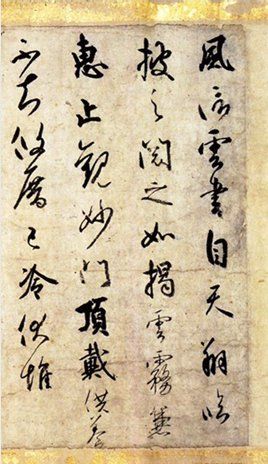 風信雲書自天翔臨
披之閲之如掲雲霧兼
恵止観妙門頂戴供養
不知攸厝已冷伏惟